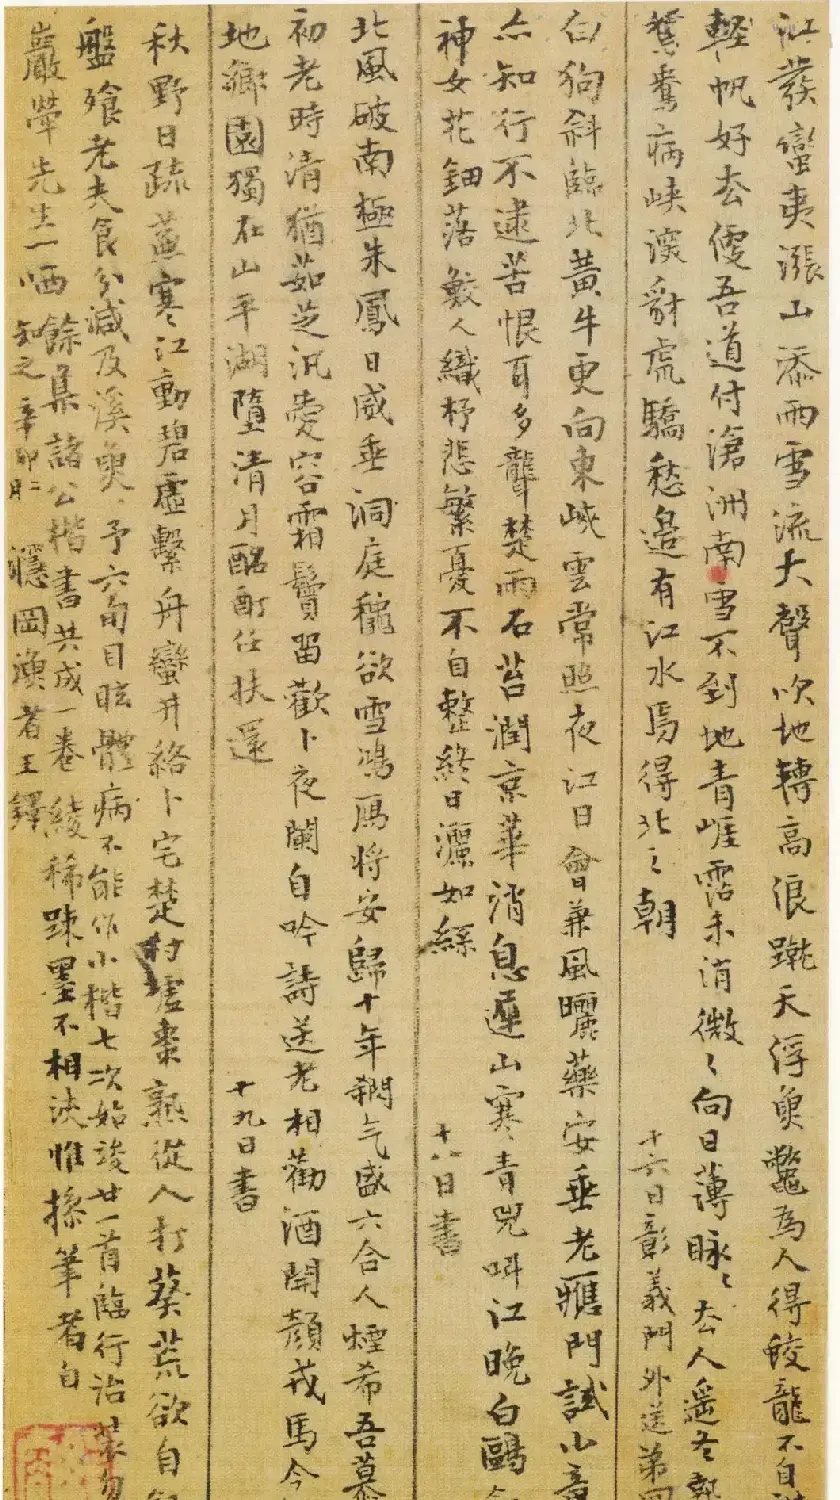 江發蠻夷漲山添雨雪流大聲吹地轉高浪蹴天浮魚鼈為人得蛟龍不自
輕帆好去便吾道付滄洲南雪不到地青崖霑未消微〻向日薄脉〻去人遥冬熱
鴛鴦病峽深豺虎驕愁邊有江水焉得北之朝
十六日彰義門外送弟
白狗斜臨北黃牛更向東峽雲常照夜江日會兼風曬藥安垂老應門試小童
亦知行不逮苦恨耳多聾楚雨石苔潤京華消息遲山寒青兕叫江晚白鷗
神女花鈿落鮫人織杼悲繁憂不自整終日灑如絲
十八日書
北風破南極朱鳳日威垂洞庭秋欲雪鴻雁將安歸十年殺气盛六合人煙希吾慕
初老時清猶茹芝汎愛容霜鬢留歡卜夜闌自吟詩送老相勸酒開顏戎馬今
地鄉園獨在山平湖墮清月酩酊任扶還
十九日書
秋野日疏蕪寒江動碧虛繫舟蠻井絡卜宅楚村墟棗熟從人打葵荒欲自
盤飱老夫食分減及溪魚予六旬目眩體病不能作小楷七次始竣廿一首臨行治裝
餘集諸公楷書共成一卷綾稀踈墨不相決惟操筆者白
巖犖先生一哂知之辛卯二月隱岡漁者王鐸